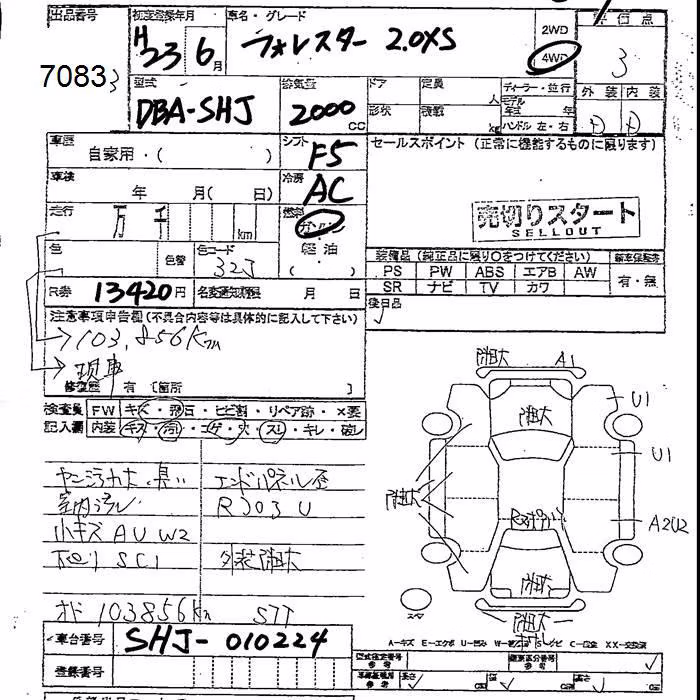 出品番号
7083
初度登録年月
H23 6月
車名・グレード
フォレスター 2.0XS
2WD
4WD
評価点
3
型式
DBA-SHJ
排気量
2000 CC
ドア
形状
定員
人
積載
kg
ディーラー・並行
モデル年式 年
ハンドル 左・右
外装 内装
D D
車歴
自家用・( )
シフト
F5
車検
年 月( 日)
冷房
AC
走行
万 千 km
燃料
ガソリン
軽油
( )
色
色替
色コード
32J
R券 13420円
名変通知期限 月 日
セールスポイント (正常に機能するものに限ります)
売切りスタート
SELLOUT
装備品 (純正品に限り○をつけてください)
PS PW ABS エアB AW
SR ナビ TV カワ
新車保証書
有・無
後日品
注意事項申告欄 (不具合内容等は具体的に記入して下さい)
103,856Km
現車
修復歴 有 [箇所 ]
検査員
記入欄
FW キズ・飛石・ヒビ割・リペア跡・×要
内装 キズ・汚・コゲ・穴・スレ・キレ・破レ
ヤニヨゴレ大・臭い
室内ヨゴレ
小キズ AU W2
下回り SC1
エンドパネル歪
R303 U
外装凹大
オド 103856Km STT
A1
U1
U1
A2U2
スペア
A-キズ E-エクボ U-凹み W-波 S-サビ C-腐食 XX-交換済
車台番号
SHJ-010224
登録番号
型式指定番号
参考
類別区分番号
参考
車体諸寸用
参考
長さ cm
幅 cm
高さ cm